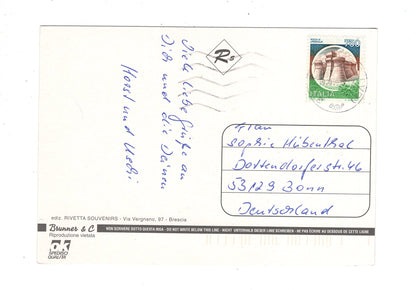 Viele liebe Grüße an
Dich und die Deinen
Horst und Uschi
R
750
ITALIA
Frau
Sophie Hübenthal
Dottendorferstr. 46
53129 Bonn
Deutschland
ediz. RIVETTA SOUVENIRS - Via Vergnano, 97 - Brescia
Brunner & C
Riproduzione vietata
NON SCRIVERE SOTTO QUESTA RIGA - DO NOT WRITE BELOW THIS LINE - NICHT UNTERHALB DIESER LINIE SCHREIBEN - NE PAS ÉCRIRE AU DESSOUS DE CETTE LIGNE